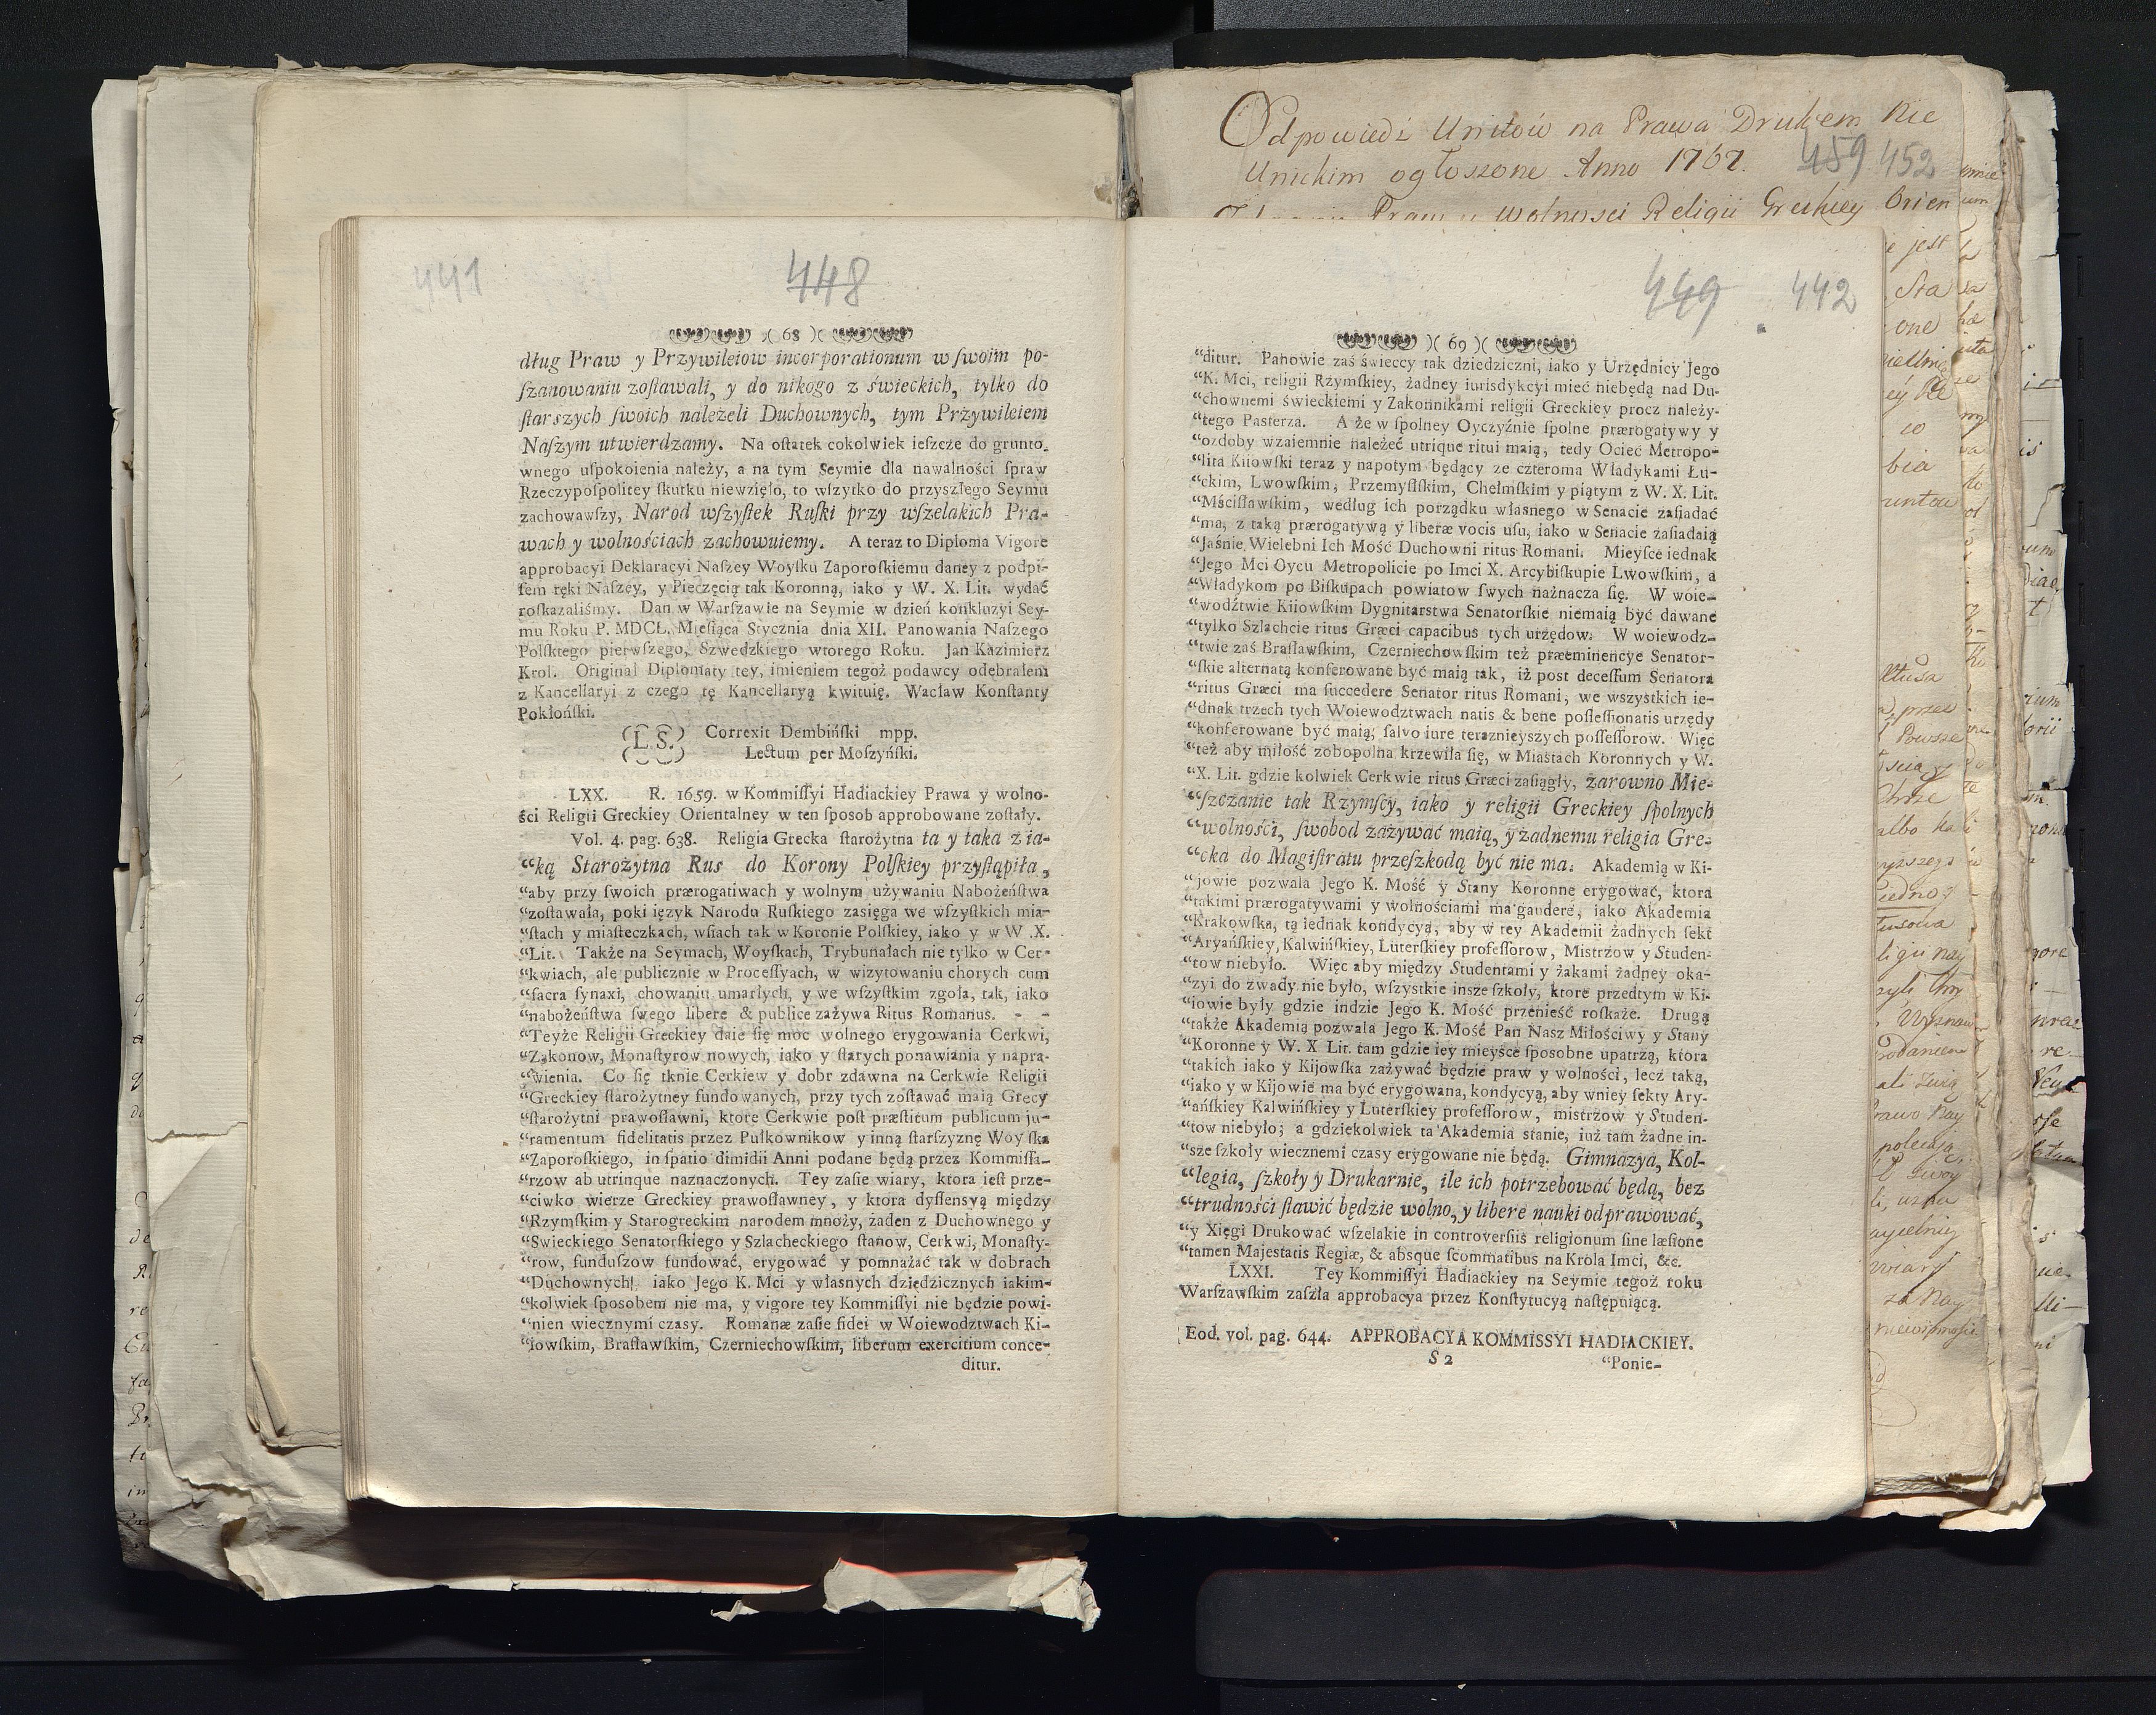 441
448
)( 68 )(
dług Praw y Przywileiow incorporationum w ſwoim po-
ſzanowaniu zoſtawali, y do nikogo z świeckich, tylko do
ſtarszych ſwoich należeli Duchownych, tym Przywileiem
Naſzym utwierdzamy. Na oſtatek cokolwiek ieſzcze do grunto-
wnego uſpokoienia należy, a na tym Seymie dla nawalności ſpraw
Rzeczypoſpolitey ſkutku niewzięło, to wſzytko do przyszłego Seymu
zachowawſzy, Narod wſzyſtek Ruſki przy wſzelakich Pra-
wach y wolnościach zachowuiemy. A teraz to Diploma Vigore
approbacyi Deklaracyi Naſzey Woyſku Zaporoſkiemu daney z podpi-
ſem ręki Naſzey, y Pieczęcią tak Koronną, iako y W. X. Lit. wydać
roſkazaliśmy. Dan w Warſzawie na Seymie w dzień konkluzyi Sey-
mu Roku P. MDCL. Mieſiąca Stycznia dnia XII. Panowania Naſzego
Polſkiego pierwſzego, Szwedzkiego wtorego Roku. Jan Kazimierz
Krol. Original Diplomaty tey, imieniem tegoż podawcy odebrałem
z Kancellaryi z czego tę Kancellaryą kwituię. Wacław Konſtanty
Pokłońſki.
(L.S.) Correxit Dembińſki mpp.
Lectum per Moſzyńſki.
LXX. R. 1659. w Kommiſſyi Hadiackiey Prawa y wolno-
ści Religii Greckiey Orientalney w ten ſposob approbowane zoſtały.
Vol. 4. pag. 638. Religia Grecka ſtarożytna ta y taka z ia-
“ką Starożytna Rus do Korony Polſkiey przyſtąpiła,
“aby przy ſwoich prærogatiwach y wolnym używaniu Nabożeńſtwa
“zoſtawała, poki ięzyk Narodu Ruſkiego zasięga we wſzyſtkich mia-
“ſtach y miaſteczkach, wſiach tak w Koronie Polſkiey, iako y w W. X.
“Lit. Także na Seymach, Woyſkach, Trybunałach nie tylko w Cer-
“kwiach, ale publicznie w Proceſſyach, w wizytowaniu chorych cum
“ſacra ſynaxi, chowaniu umarłych, y we wſzyſtkim zgoła, tak, iako
“nabożeńſtwa ſwego libere & publice zażywa Ritus Romanus. - -
“Teyże Religii Greckiey daie się moc wolnego erygowania Cerkwi,
“Zakonow, Monaſtyrow nowych, iako y ſtarych ponawiania y napra-
“wienia. Co się tknie Cerkiew y dobr zdawna na Cerkwie Religii
“Greckiey ſtarożytney fundowanych, przy tych zoſtawać maią Grecy
“ſtarożytni prawoſławni, ktore Cerkwie poſt præſtitum publicum ju-
“ramentum fidelitatis przez Pułkownikow y inną ſtarſzyznę Woyſka
“Zaporoſkiego, in ſpatio dimidii Anni podane będą przez Kommiſſa-
“rzow ab utrinque naznaczonych. Tey zaſie wiary, ktora ieſt prze-
“ciwko wierze Greckiey prawoſławney, y ktora dyſſenſyą między
“Rzymſkim y Starogreckim narodem mnoży, żaden z Duchownego y
“Swieckiego Senatorſkiego y Szlacheckiego ſtanow, Cerkwi, Monaſty-
“row, funduſzow fundować, erygować y pomnażać tak w dobrach
“Duchownych, iako Jego K. Mci y własnych dziedzicznych iakim-
“kolwiek ſposobem nie ma, y vigore tey Kommiſſyi nie będzie powi-
“nien wiecznymi czasy. Romanæ zaſie fidei w Woiewodztwach Ki-
“iowſkim, Braſławſkim, Czerniechowſkim, liberum exercitium conce-
ditur.
Odpowiedź Unitow na Prawa Drukem Nie
Unickim ogłoszone Anno 1767. 459 452
449 442
)( 69 )(
“ditur. Panowie zaś świeccy tak dziedziczni, iako y Urzędnicy Jego
“K. Mci, religii Rzymſkiey, żadney iurisdykcyi mieć niebędą nad Du-
“chownemi świeckiemi y Zakonnikami religii Greckiey procz należy-
“tego Pasterza. A że w ſpolney Oyczyźnie ſpolne prærogatywy y
“ozdoby wzaiemnie należeć utrique ritui maią, tedy Ociec Metropo-
“lita Kiiowſki teraz y napotym będący ze czteroma Władykami Łu-
“ckim, Lwowſkim, Przemyſlſkim, Chełmſkim y piątym z W. X. Lit.
“Mściſławſkim, według ich porządku własnego w Senacie zaſiadać
“ma, z taką prærogatywą y liberæ vocis uſu, iako w Senacie zaſiadaią
“Jaśnie Wielebni Ich Mość Duchowni ritus Romani. Mieyſce iednak
“Jego Mci Oycu Metropolicie po Imci X. Arcybiſkupie Lwowſkim, a
“Władykom po Biſkupach powiatow ſwych naznacza się. W woie-
“wodźtwie Kiiowſkim Dygnitarstwa Senatorſkie niemaią być dawane
“tylko Szlachcie ritus Græci capacibus tych urzędow. W woiewodz-
“twie zaś Braſławſkim, Czerniechowſkim też præeminencye Senator-
“ſkie alternatą konferowane być maią tak, iż post deceſſum Senatora
“ritus Græci ma ſuccedere Senator ritus Romani, we wszystkich ie-
“dnak trzech tych Woiewodztwach natis & bene poſſeſſionatis urzędy
“konferowane być maią, ſalvo iure teraznieyszych poſſeſſorow. Więc
“też aby miłość zobopolna krzewiła się, w Miastach Koronnych y W.
“X. Lit. gdzie kolwiek Cerkwie ritus Græci zaſiągły, zarowno Mie-
“ſzczanie tak Rzymſcy, iako y religii Greckiey ſpolnych
“wolności, ſwobod zażywać maią, y żadnemu religia Gre-
“cka do Magiſtratu przeſzkodą być nie ma. Akademią w Ki-
“jowie pozwala Jego K. Mość y Stany Koronne erygować, ktora
“takimi prærogatywami y wolnościami ma gaudere, iako Akademia
“Krakowſka, tą iednak kondycyą, aby w tey Akademii żadnych ſekt
“Aryańſkiey, Kalwińſkiey, Luterſkiey profeſſorow, Mistrzow y Studen-
“tow niebyło. Więc aby między Studentami y żakami żadney oka-
“zyi do zwady nie było, wſzystkie insze ſzkoły, ktore przedtym w Ki-
“iowie były gdzie indzie Jego K. Mość przenieść roſkaże. Drugą
“także Akademią pozwala Jego K. Mość Pan Nasz Miłościwy y Stany
“Koronne y W. X Lit. tam gdzie iey mieyſce ſposobne upatrzą, ktora
“takich iako y Kijowſka zażywać będzie praw y wolności, lecz taką,
“iako y w Kijowie ma być erygowana, kondycyą, aby wniey ſekty Ary-
“ańſkiey Kalwińſkiey y Luterſkiey profeſſorow, mistrzow y Studen-
“tow niebyło; a gdziekolwiek ta Akademia stanie, iuż tam żadne in-
“sze ſzkoły wiecznemi czasy erygowane nie będą. Gimnazya, Kol-
“legia, ſzkoły y Drukarnie, ile ich potrzebować będą, bez
“trudności ſtawić będzie wolno, y libere nauki odprawować,
“y Xięgi Drukować wſzelakie in controverſiis religionum ſine læſione
“tamen Majestatis Regiæ, & absque ſcommatibus na Krola Imci, &c.
LXXI. Tey Kommiſſyi Hadiackiey na Seymie tegoż roku
Warſzawſkim zaſzła approbacya przez Konſtytucyą naſtępuiącą.
Eod. vol. pag. 644. APPROBACYA KOMMISSYI HADIACKIEY.
S 2 “Ponie-